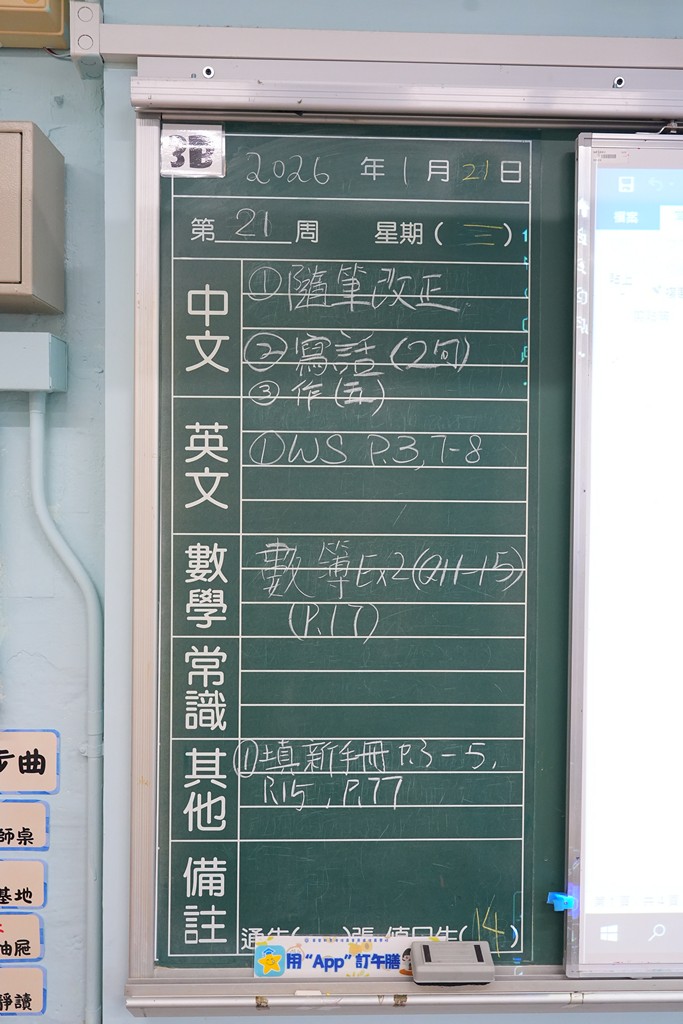 3D
2026 年 1 月 21 日
第 21 周 星期 ( 三 )
中文
① 隨筆改正
② 寫話 (2句)
③ 作 (五)
英文
① WS P.3, 7-8
數學
數簿 Ex2 (Q11-15)
(P.17)
常識
其他
① 填新手冊 P.3-5,
P.15, P.77
備註
通告( )張 值日生( 14 )
用 “App” 訂午膳
檔案
曲
師桌
基地
抽屜
靜讀